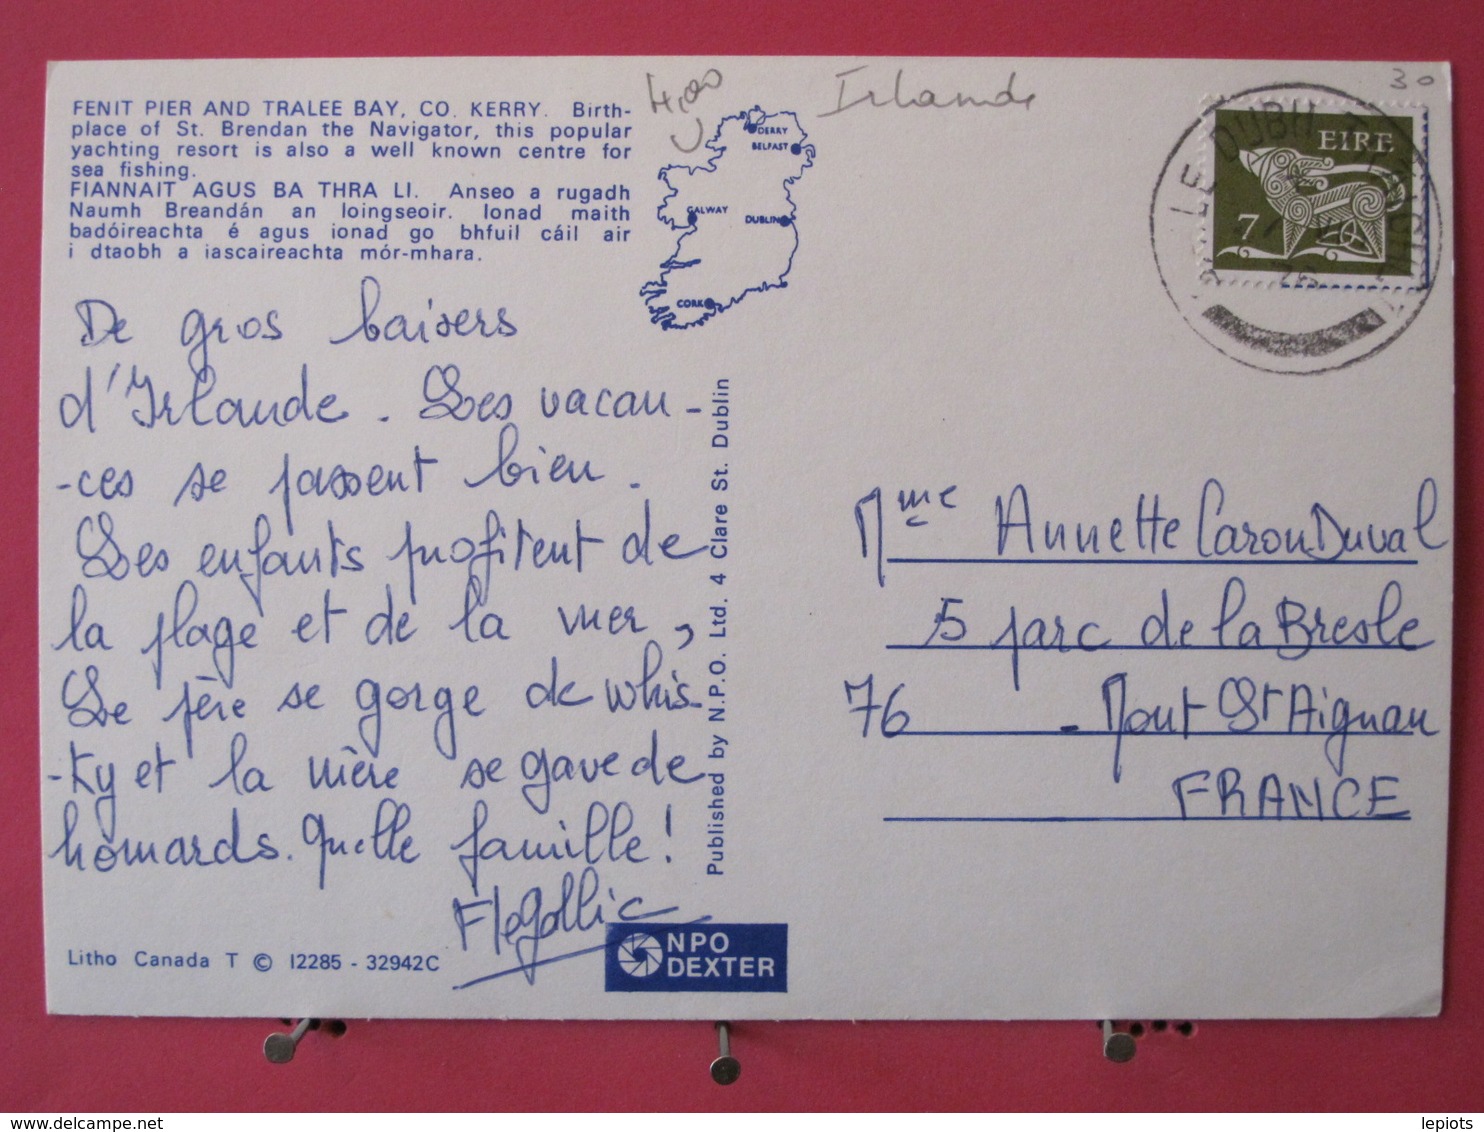 FENIT PIER AND TRALEE BAY, CO. KERRY. Birth-
place of St. Brendan the Navigator, this popular
yachting resort is also a well known centre for
sea fishing.
FIANNAIT AGUS BA THRA LI. Anseo a rugadh
Naumh Breandán an loingseoir. Ionad maith
badóireachta é agus ionad go bhfuil cáil air
i dtaobh a iascaireachta mór-mhara.
4,00
Irlande
30
DERRY
BELFAST
GALWAY
DUBLIN
CORK
EIRE
7
76
De gros baisers
d'Irlande. Les vacan-
-ces se passent bien.
Les enfants profitent de
la plage et de la mer,
Le père se gorge de whis-
-ky et la mère se gave de
homards. Quelle famille!
Published by N.P.O. Ltd. 4 Clare St. Dublin
Mme Annette Caron Duval
5 parc de la Bresle
76 - Mont St Aignan
FRANCE
Litho Canada T © I2285 - 32942C
NPO
DEXTER
Copyright delcampe.net
lepiots